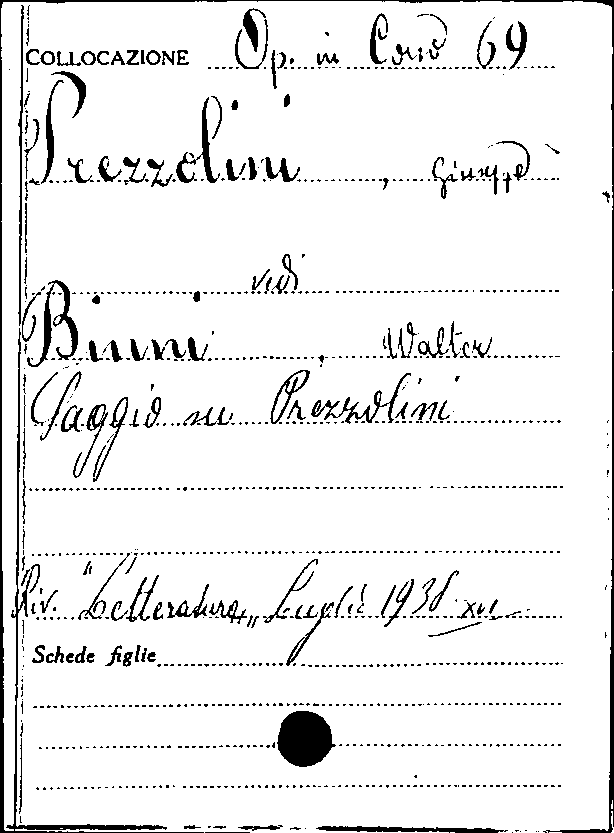 COLLOCAZIONE Op. in Corso 69
Prezzolini, Giuseppe
vedi
Binni, Walter
Saggio su Prezzolini
Riv. "Letteratura„ Luglio 1938 XVI
Schede figlie